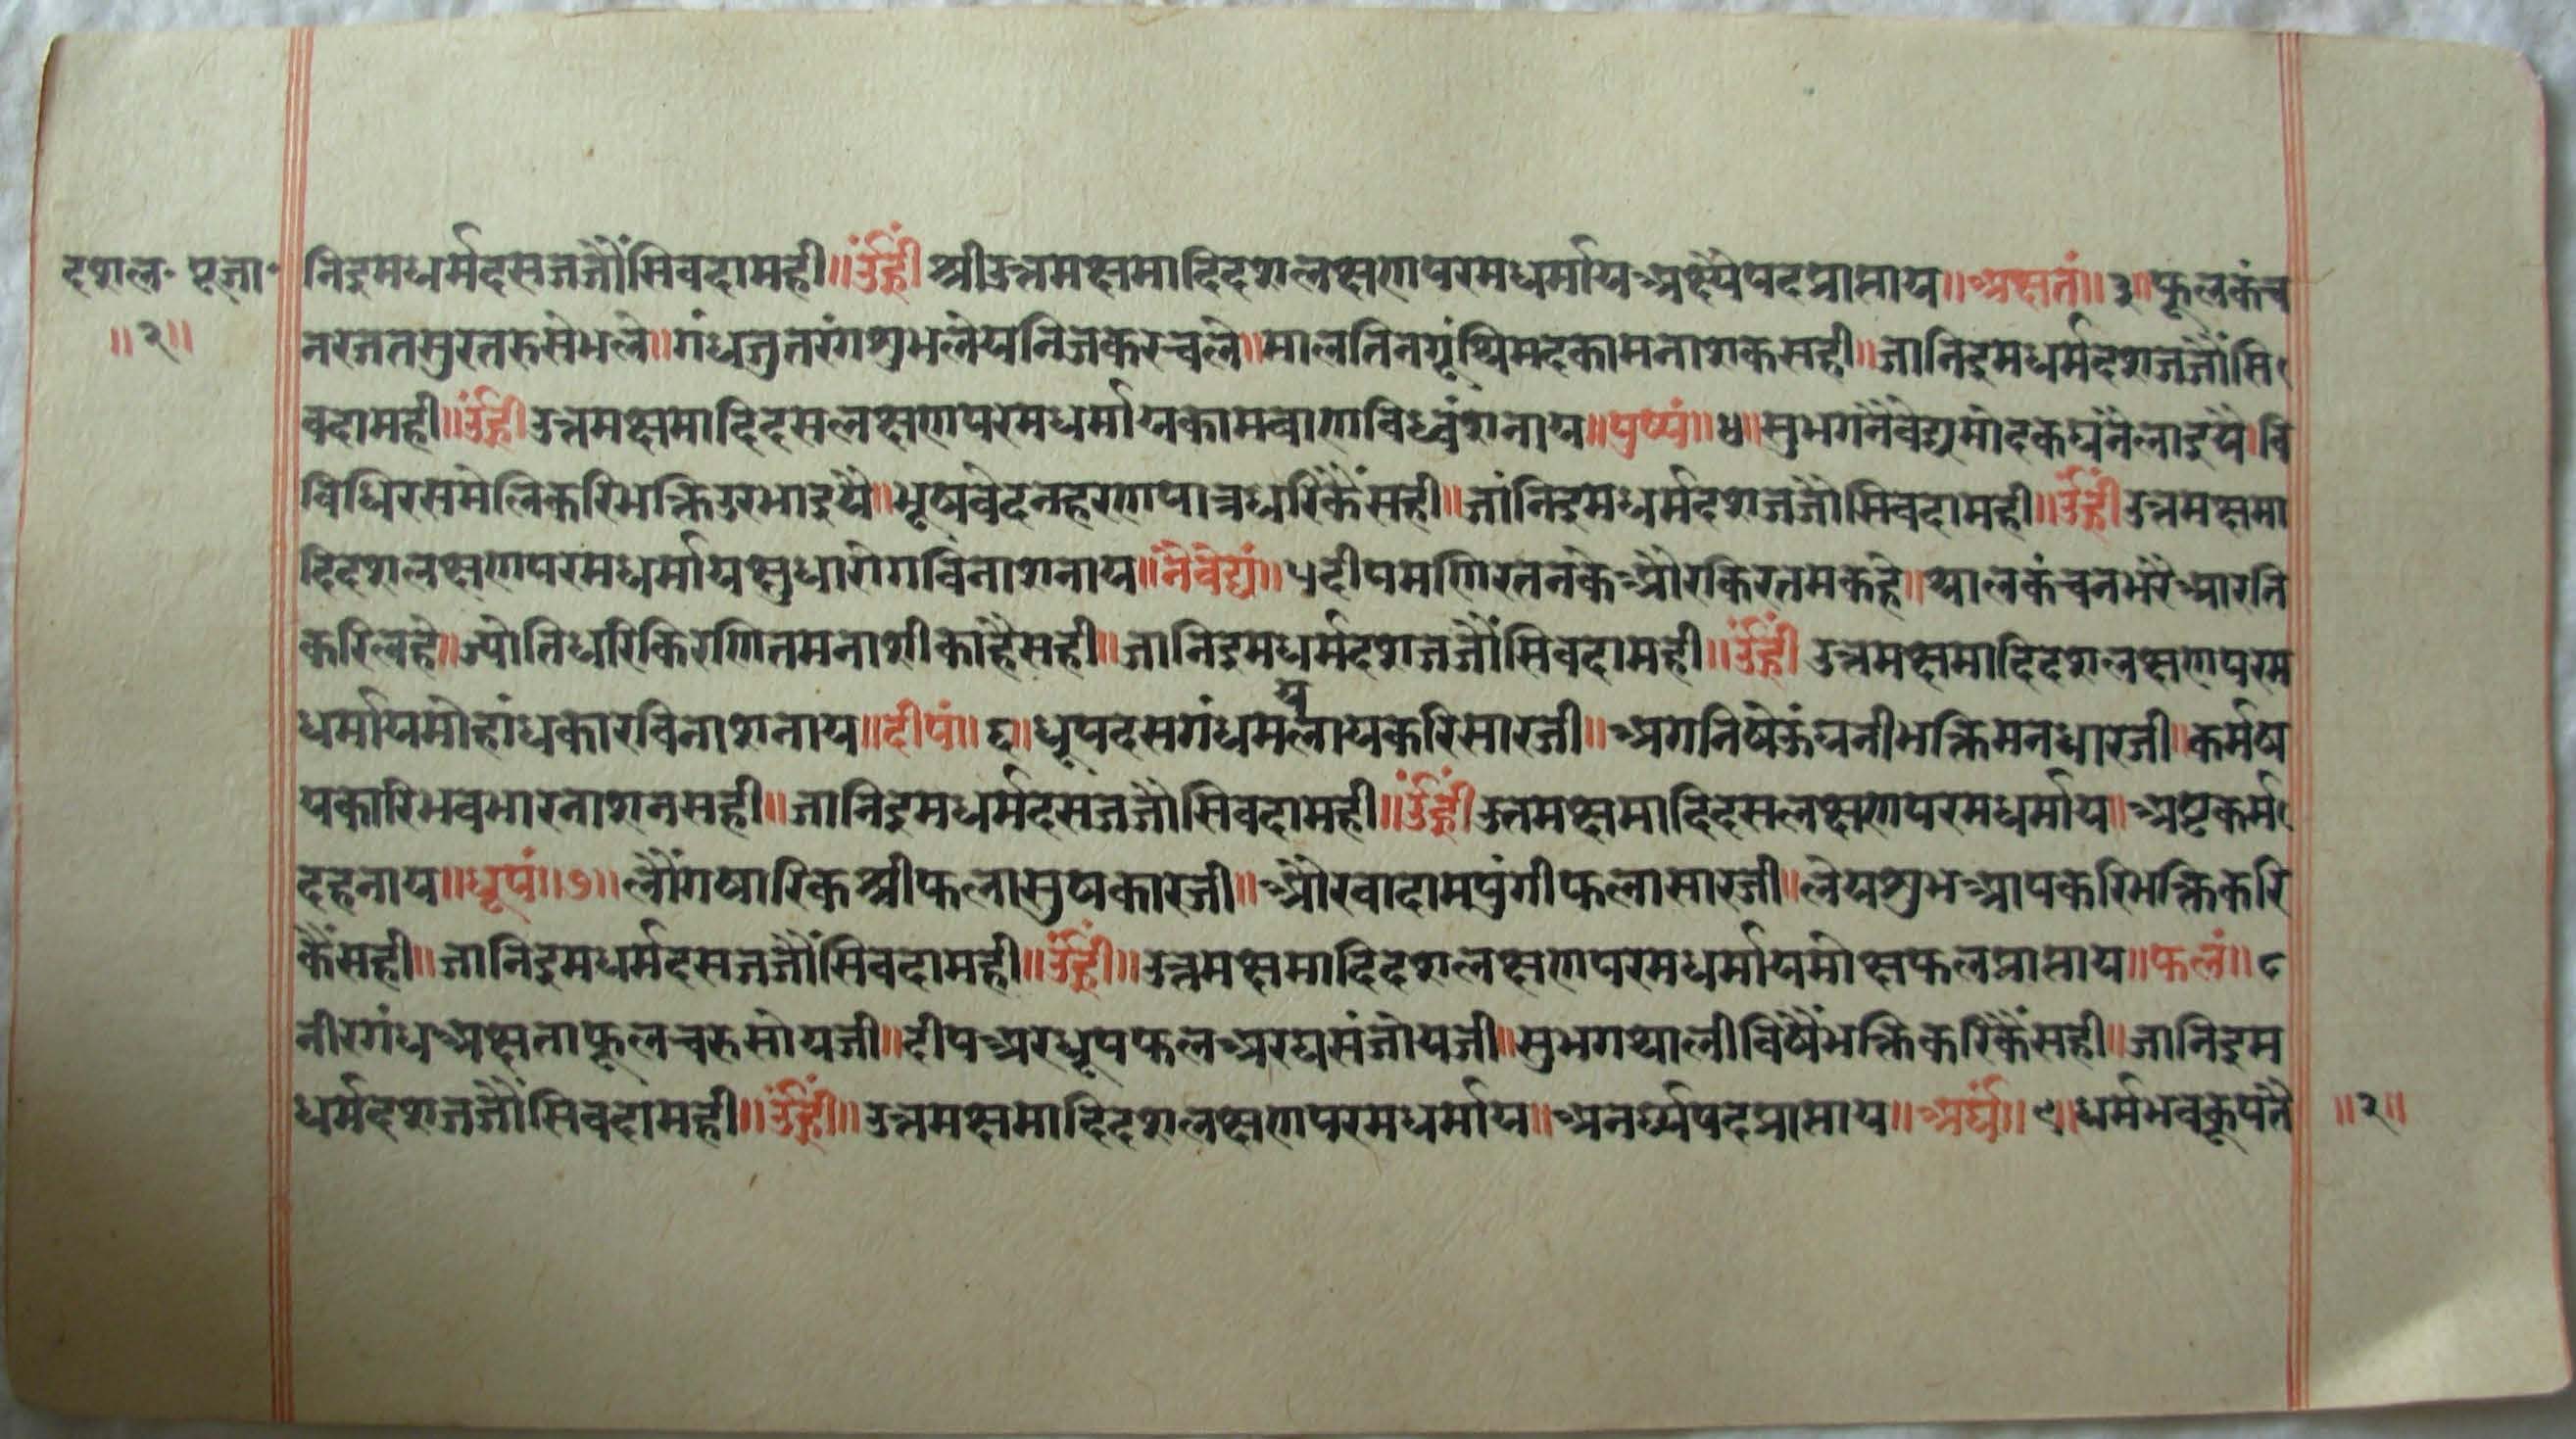 दशल॰ पूजा॰
॥२॥
निइमधर्मदसजजौंसिवदामही॥उंर्ह्रीं श्रीउत्तमक्षमादिदशलक्षणपरमधर्मायअक्ष्यैपदप्राप्ताय॥अक्षतं॥३॥फूलकंच
नरजतसुरतरुसेभले॥गंधजुतरंगशुभलेयनिजकरचले॥मालतिनगूंथिमदकामनाशकसही॥जानिइमधर्मदशजजौंसि
वदामही॥उंर्ह्रीं उत्तमक्षमादिदसलक्षणपरमधर्मायकामवाणविध्वंशनाय॥पुष्पं॥४॥सुभगनैवेद्यमोदकघनैलाइयै॥वि
विधिरसमेलिकरिभक्तिउरभाइयै॥भूषवेदनहरणपात्रधरिकैंसही॥जांनिइमधर्मदशजजौसिवदामही॥उंर्ह्रीं उत्तमक्षमा
दिदशलक्षणपरमधर्मायक्षुधारोगविनाशनाय॥नैवेद्यं॥५दीपमणिरतनकेऔरकिरतमकहे॥थालकंचनभरैआरति
करिलहे॥ज्योतिधरिकिरणितमनाशीकाहैसही॥जानिइमधर्मदशजजौंसिवदामही॥उंर्ह्रीं उत्तमक्षमादिदशलक्षणपरम
धर्मायमोहांधकारविनाशनाय॥दीपं॥६॥धूपदसगंधमयलायकरिसारजी॥अगनिषेऊंघनीभक्तिमनधारजी॥कर्मष
यकारिभवभारनाशनसही॥जानिइमधर्मदसजजौसिवदामही॥उंर्ह्रीं उतमक्षमादिदसलक्षणपरमधर्माय॥अष्टकर्म
दहनाय॥धूपं॥७॥लौंगषारिकश्रीफलासुषकारजी॥औरवादामपुंगीफलासारजी॥लेयशुभआपकरिभक्तिकरि
कैंसही॥जानिइमधर्मदसजजौंसिवदामही॥उंर्ह्रीं॥उत्तमक्षमादिदशलक्षणपरमधर्मायमोक्षफलप्राप्ताय॥फलं॥८
नीरगंधअक्षताफूलचरुसोयजी॥दीपअरधूपफलअरघसंजोयजी॥सुभगथालीविषैंभक्तिकरिकैंसही॥जानिइम
धर्मदशजजौंसिवदामही॥उंर्ह्रीं॥उत्तमक्षमादिदशलक्षणपरमधर्माय॥अनर्घ्यपदप्राप्ताय॥अर्घं॥९॥धर्मभवकूपतै
॥२॥